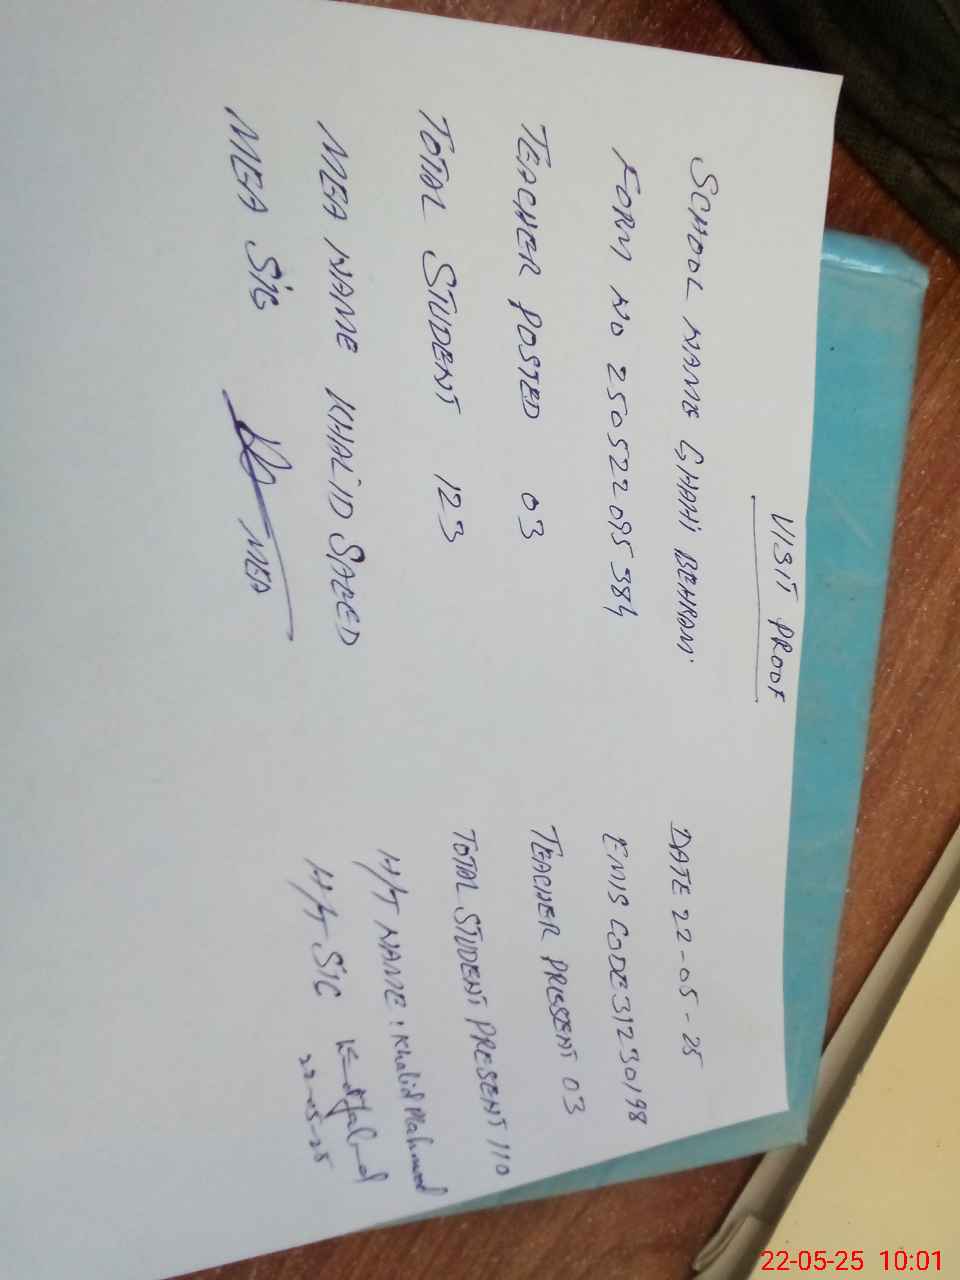 VISIT PROOF
SCHOOL NAME GHAHI BEHRAM. DATE 22-05-25
FORM NO 250522095384 EMIS CODE 31230198
TEACHER POSTED 03 TEACHER PRESENT 03
TOTAL STUDENT 123 TOTAL STUDENT PRESENT 110
MEA NAME KHALID SAEED H/T NAME: Khalid Mahmood
MEA SIG MEA H/T SIG
22-05-25
22-05-25 10:01